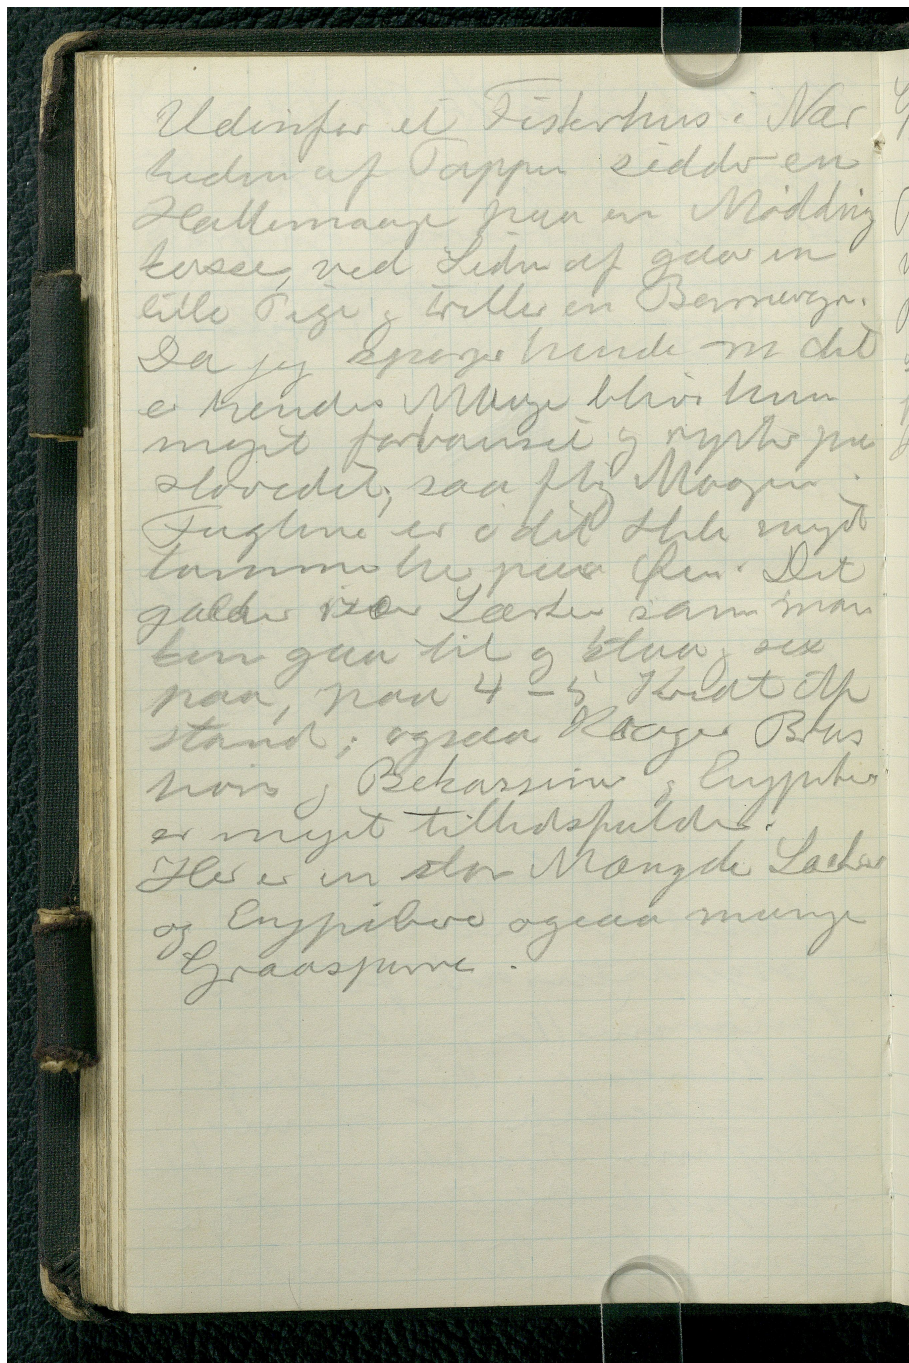 Udenfor et Fiskerhus i Nær
heden af Tappen sidder en
Hættemaage paa en Mødding
ved Siden af gaar en
lille Pige og triller en Barnevogn.
Da jeg spørger hende om det
er hendes Maage bliver hun
meget forbauset og ryster paa
Hovedet, saa fløj Maagen.
Fuglene er i det Hele meget
tamme her paa Øen. Det
gælder især Lærker, som man
kan gaa til og staa og see
paa, paa 4-5 Skridt Af
stand; ogsaa Krager Brus
høns og Bekassiner og Engpiber
er meget tillidsfulde.
Her er en stor Mængde Lærker
og Engpibere ogsaa mange
Graaspurve.